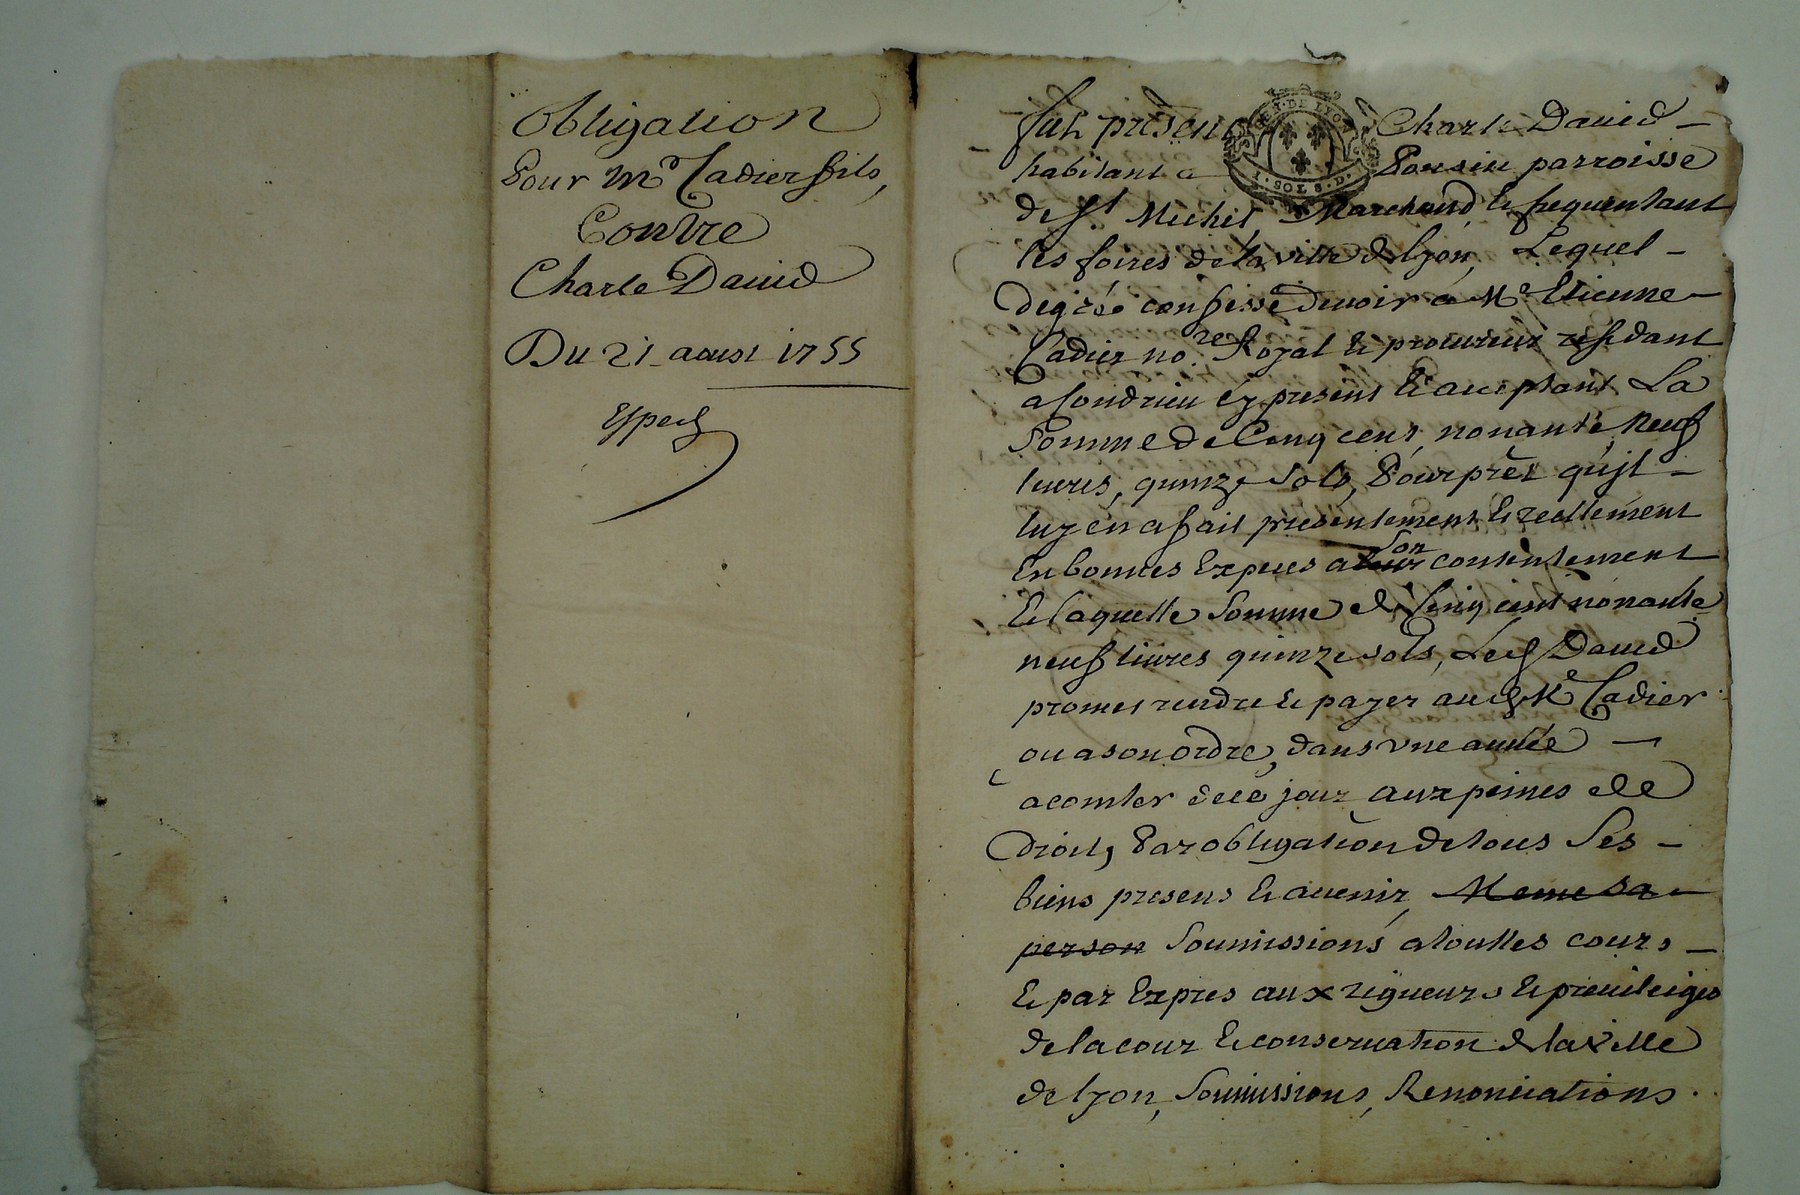 Obligation
Pour Me Cadier fils,
Contre
Charle David
Du 21 aoust 1755
Exped
fut present Charle David
GEN. DE LYON
I. SOLS. D.
habitant a Ponsin parroisse
de St Michel Marchand & frequentant
les foires de la ville de lyon, Lequel
degréé confesse devoir a Me Etienne
Cadier nore Royal & procureur residant
a Condrieu cy present & acceptant La
Somme de Cinq cent nonante Neuf
livres, quinze sols, Pour prêt qu'jl
luy en a fait presentement & reellement
En bonnes Expeces a son leur contentement
& laquelle Somme de Cinq cent nonante
neuf livres quinze sols, Led David
promet rendre & payer aud Me Cadier
ou a son ordre, dans vne année
a comter de ce jour aux peines de
droit, Par obligation de tous Ses
biens presens & avenir, Meme sa
person Soumissions a touttes cours
& par Expres aux rigueurs & previleiges
de la cour & conservation de la ville
de lyon, Soumissions, Renonciations.